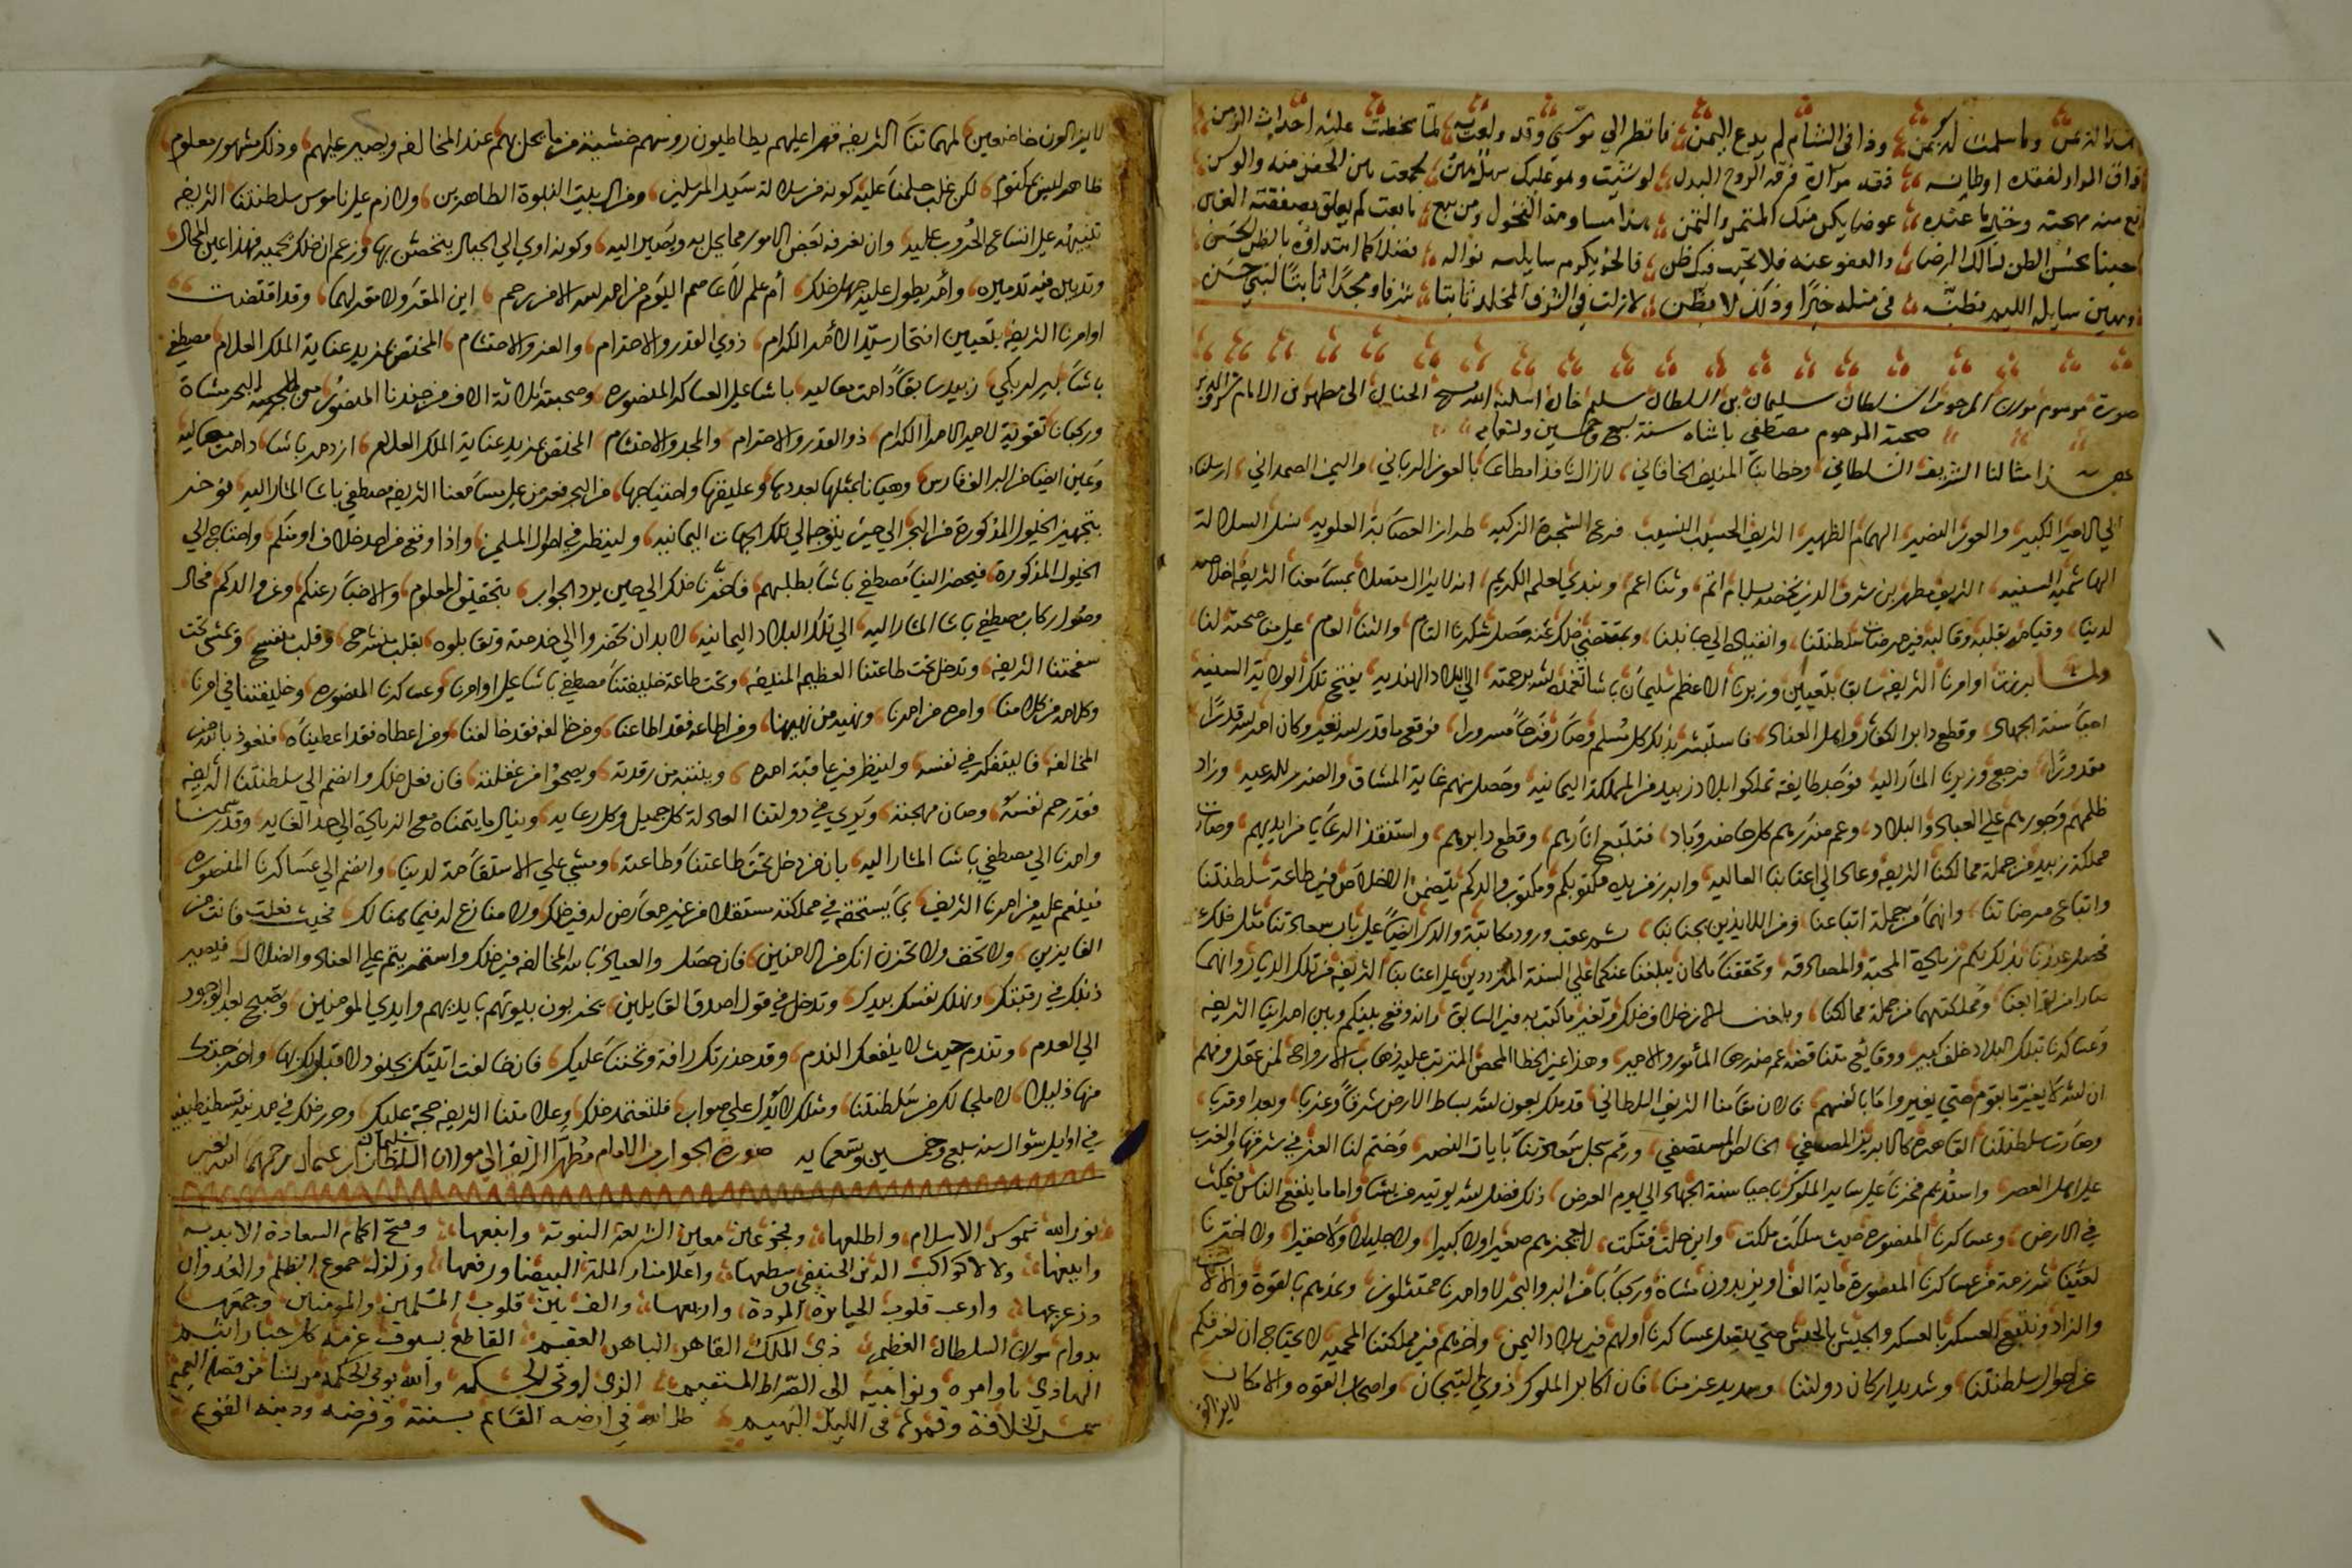 وذا في الشام لم يدع اليمن فانظر الي موسى وقد ولعت به لما سخطت عليه احداث الزمن
ذاق المرار لفقد اوطانه فقد مرارة فرقة الروح البدن لو شئت وهو عليك سهل هين لجمعت بين الجفن منه والوسن
منه مهجته وخذ ما عنده عوضا يكن منك المثمن والثمن هذا مساومة الفحول ومن يبع ما بعت لم يعلق بصفقته الغبن
بحسن الظن نسالك الرضا والعفو عنه فلا تخيب فيك ظن
لا زلت في الشرف المخلد ثابتا شرفا ومجدا ثابتا لبني حسن
صورة مرسوم مولانا المرحوم السلطان سليمان بن السلطان سليم خان اسكنه الله فسيح الجنان الى مطهر بن الامام شرف الدين
صحبة المرحوم مصطفى باشاه سنة سبع وخمسين وتسعمايه
هذا مثالنا الشريف السلطاني وخطابنا المنيف الخاقاني لا زال نافذا مطاعا بالعون الرباني واليمن الصمداني ارسلناه
الي الامير الكبير والعون النصير الهمام الظهير الشريف الحسيب النسيب فرع الشجرة الزكيه طراز العصابة العلويه نسل السلالة
الهاشميه السنيه الشريف مطهر بن شرف الدين نخصه بسلام اتم وثنا اعم ونبدي لعلمه الكريم انه لا يزال متصلا بمسامعنا الشريفه اخلاصه
لدينا وقيامه بقلبه وقالبه في مرضات سلطنتنا وانقياده الي جانبنا وبمقتضى ذلك عنه حصل شكرنا التام والثنا العام على مناصحته لنا
ولما برزت اوامرنا الشريفه سابقا بتعيين وزيرنا الاعظم سليمان باشا تغمده الله برحمته الي البلاد الهنديه بفتح تلك الولاية السنيه
احيا سنة الجهاد وقطع دابر الكفار واهل العناد فاستبشر بذلك كل مسلم وصار فرحا مسرورا فوقع ما قدر الله تعالى وكان امر الله قدرا
مقدورا فرجع وزيرنا المشار اليه فوجد طايفة تملكوا بلاد زبيد من المملكة اليمانيه وحصل منهم غاية المشاق والضرر للرعيه وزاد
ظلمهم وجورهم على العباد والبلاد وعم ضررهم كل حاضر وباد فتتبع اثارهم وقطع دابرهم واستنقذ الرعايا من ايديهم وصارت
مملكة زبيد من جملة ممالكنا الشريفه وعاد الي اعتابنا العاليه وابرز من يده مكتوبكم ومكتوب والدكم يتضمن الاخلاص في طاعة سلطنتنا
واتباع مرضاتنا وانهما من جملة اتباعنا ومن اللايذين بجنابنا ثم عقب ورود مكاتبة والدك ايضا على باب سعادتنا مثل ذلك
فحصل عندنا بذلك بكم زيادة المحبة والمصادقه وتحققنا ما كان يبلغنا عنكما على السنة المترددين على اعتابنا الشريفه من تلك الديار وانهما
صارا من توابعنا ومملكتهما من جملة ممالكنا وبلغنا الان خلاف ذلك وتغير ما كتب به في السابق وانه وقع بينكم وبين امراينا الشريفه
وعساكرنا بتلك البلاد خلف كبير ووقايع متناقضه عم ضررها المأمور والامير وهذا عين الخطا المحض المترتب عليه ذهاب الارواح لمن عقل وفهم
ان الله لا يغير ما بقوم حتى يغيروا ما بانفسهم فالان مقامنا الشريف السلطاني قد ملك بعون الله بساط الارض شرقا وغربا وبعدا وقربا
وصارت سلطنتنا القاهره كالابريز المصفى الخالص المستصفى ورقم سجل سعادتنا بايات النصر وختم لنا العز في شرقها والغرب
على اهل العصر واستديم فخرنا على ساير الملوك باحيا سنة الجهاد الي يوم العرض ذلك فضل الله يوتيه من يشا واما ما ينفع الناس فيمكث
في الارض وعساكرنا المنصوره حيث سلكت ملكت واين حلت فتكت لا يعجزهم صغيرا ولا كبيرا ولا جليلا ولا حقيرا ولو اخترنا
لعينا شرذمة من عساكرنا المنصورة ماية الف او يزيدون مشاة وركبانا من البر والبحر لاوامرنا ممتثلون ونمدهم بالقوة والالات
والزاد ونتبع العسكر بالعسكر والجيش بالجيش حتى يتصل عساكرنا اولهم في بلاد اليمن واخرهم في مملكتنا المحميه لا يحتاج ان نعرفكم
عن احوال سلطنتنا وتشديد اركان دولتنا وتمهيد عزمنا فان اكابر الملوك ذوي التيجان واصحاب القوه والامكان
لا يزالون
لا يزالون خاضعين لمهماتنا الشريفه قهرا عليهم يطاطيون روسهم خشية من ما يحل بهم عند المخالفه ويصير عليهم وذلك مشهور معلوم
ظاهر ليس بمكتوم لكن غلب حلمنا عليه كونه من سلالة سيد المرسلين ومن ال بيت النبوة الطاهرين ولازم على ناموس سلطنتنا الشريفه
تنبيهه على اتساع الخروب عليه وان نعرفه بعض الامور مما يحل به ويصير اليه وكونه اوي الي الجبال يتحصن بها وزعم ان ذلك يحميه فهذا عين المحال
وتدبير فيه تدميره وأمد يطول عليه جهل ذلك أم علم لا عاصم اليوم من امر الله الا من رحم اين المفر ولا مقر لها وقد اقتضت
اوامرنا الشريفه بتعيين افتخار سيد الأمرا الكرام ذوي القدر والاحترام والعز والاحتشام المختص بمزيد عناية الملك العلام مصطفى
باشا بكلربكي زبيد سابقا دامت معاليه باشا على العساكر المنصوره وصحبته ثلاثة الاف من جندنا المنصور من البحر مشاة
وركبانا تقوية لامير الامرا الكرام ذو القدر والاحترام والمجد والاحتشام المختص بمزيد عناية الملك العلام ازدمر باشا دامت معاليه
وعين ايضا من البر الف فارس وهيانا بمثلها بعددها وعليقها واحتياجها من البحر فعرض على مسامعنا الشريفه مصطفى باشا المشار اليه نوخر
بتجهيز الخيول المذكورة من البحر الي حين يتوجه الي تلك الجهات اليمانيه ولينظر في احوال المسلمين واذا وقع من احد خلاف او منكم واحتاج الي
الخيول المذكورة فيحضر الينا مصطفى باشا بطلبهم فاخرنا ذلك الي حين يرد الجواب بتحقيق المعلوم والاخبار عنكم وعن والدكم فحال
وصول ركاب مصطفى باشا المشار اليه الي تلك البلاد اليمانيه لا بد ان تحضروا الي خدمته وتقابلوه بقلب منشرح وقلب منفسح وتمشى تحت
سنجقنا الشريفه وتدخل تحت طاعتنا العظيم المنيفه وتحت طاعة خليفتنا مصطفى باشا على اوامرنا وعساكرنا المنصوره وخليفتنا في امرنا
وكلامه من كلامنا وامره من امرنا ونهيه من نهينا ومن اطاعه فقد اطاعنا ومن خالفه فقد خالفنا ومن اعطاه فقد اعطيناه فنعوذ بالله من
المخالفه فاليتفكر في نفسه ولينظر في عاقبة امره وينتبه من رقدته ويصحوا من غفلته فان فعل ذلك وانضم الي سلطنتنا الشريفه
فقد رحم نفسه وصان مهجته ويري في دولتنا العادلة كل جميل وكل رعايه وينال ما يتمناه مع الزيادة الي حد الغايه وقد رسمنا
وامرنا الي مصطفى باشا المشار اليه بان من دخل تحت طاعتنا وطاعته ومشي على الاستقامة لدينا وانضم الي عساكرنا المنصوره
فينعم عليه من امرنا الشريف بما يستحقه في مملكته مستقلا من غير معارض له في ذلك ولا منازع له فيما هنالك فحيث فعلت فانت من
الفايزين ولا تخف ولا تحزن انك من الامنين فان حصل والعياذ بالله المخالفه في ذلك واستمريتم على العناد والضلال فيصير
ذنبك في رقبتك وتهلك نفسك بيدك وتدخل في قول اصدق القايلين يخربون بيوتهم بايديهم وايدي المومنين وتصبح بعد الوجود
الي العدم وتندم حيث لا ينفعك الندم وقد حذرتك رافة وتحننا عليك فان خالفت اتيتك بجنود لا قبل لك بها واخرجتك
منها ذليلا لا ملجا لك من سلطنتنا ومثلك لا يدل على صواب فلتعتمد ذلك وعلامتنا الشريفه حجة عليك وحرر ذلك في مدينة قسطنطينيه
في اوايل شوال سنه سبع وخمسين وتسعمايه صورة الجواب من الامام مطهر الشريف الي مولانا السلطان سليمان بن عثمان رحمهما الله تعالى
نور الله شموس الاسلام واطلعها وفجر عيون معين الشريعة النبوية وانبعها وفتح اكمام السعادة الابديه
واينعها ولالا كواكب الدين الحنيفي وسطعها واعلا منار الملة البيضا ورفعها وزلزل جموع الظلم والعدوان
وزعزعها وارعب قلوب الجبابرة المردة واربعها والف بين قلوب المسلمين والمومنين وجمعها
بدوام مولانا السلطان العظيم ذي الملك القاهر الباهر العقيم القاطع بسيوف عزمه كل جبار اثيم
الهادي باوامره ونواهيه الى الصراط المستقيم الذي اوتي الحكمه والله يوتي الحكمه من يشا من فضله العميم
شمس الخلافة وقمرها في الليل البهيم ظل الله في ارضه القايم بسنته وفرضه ودينه القويم